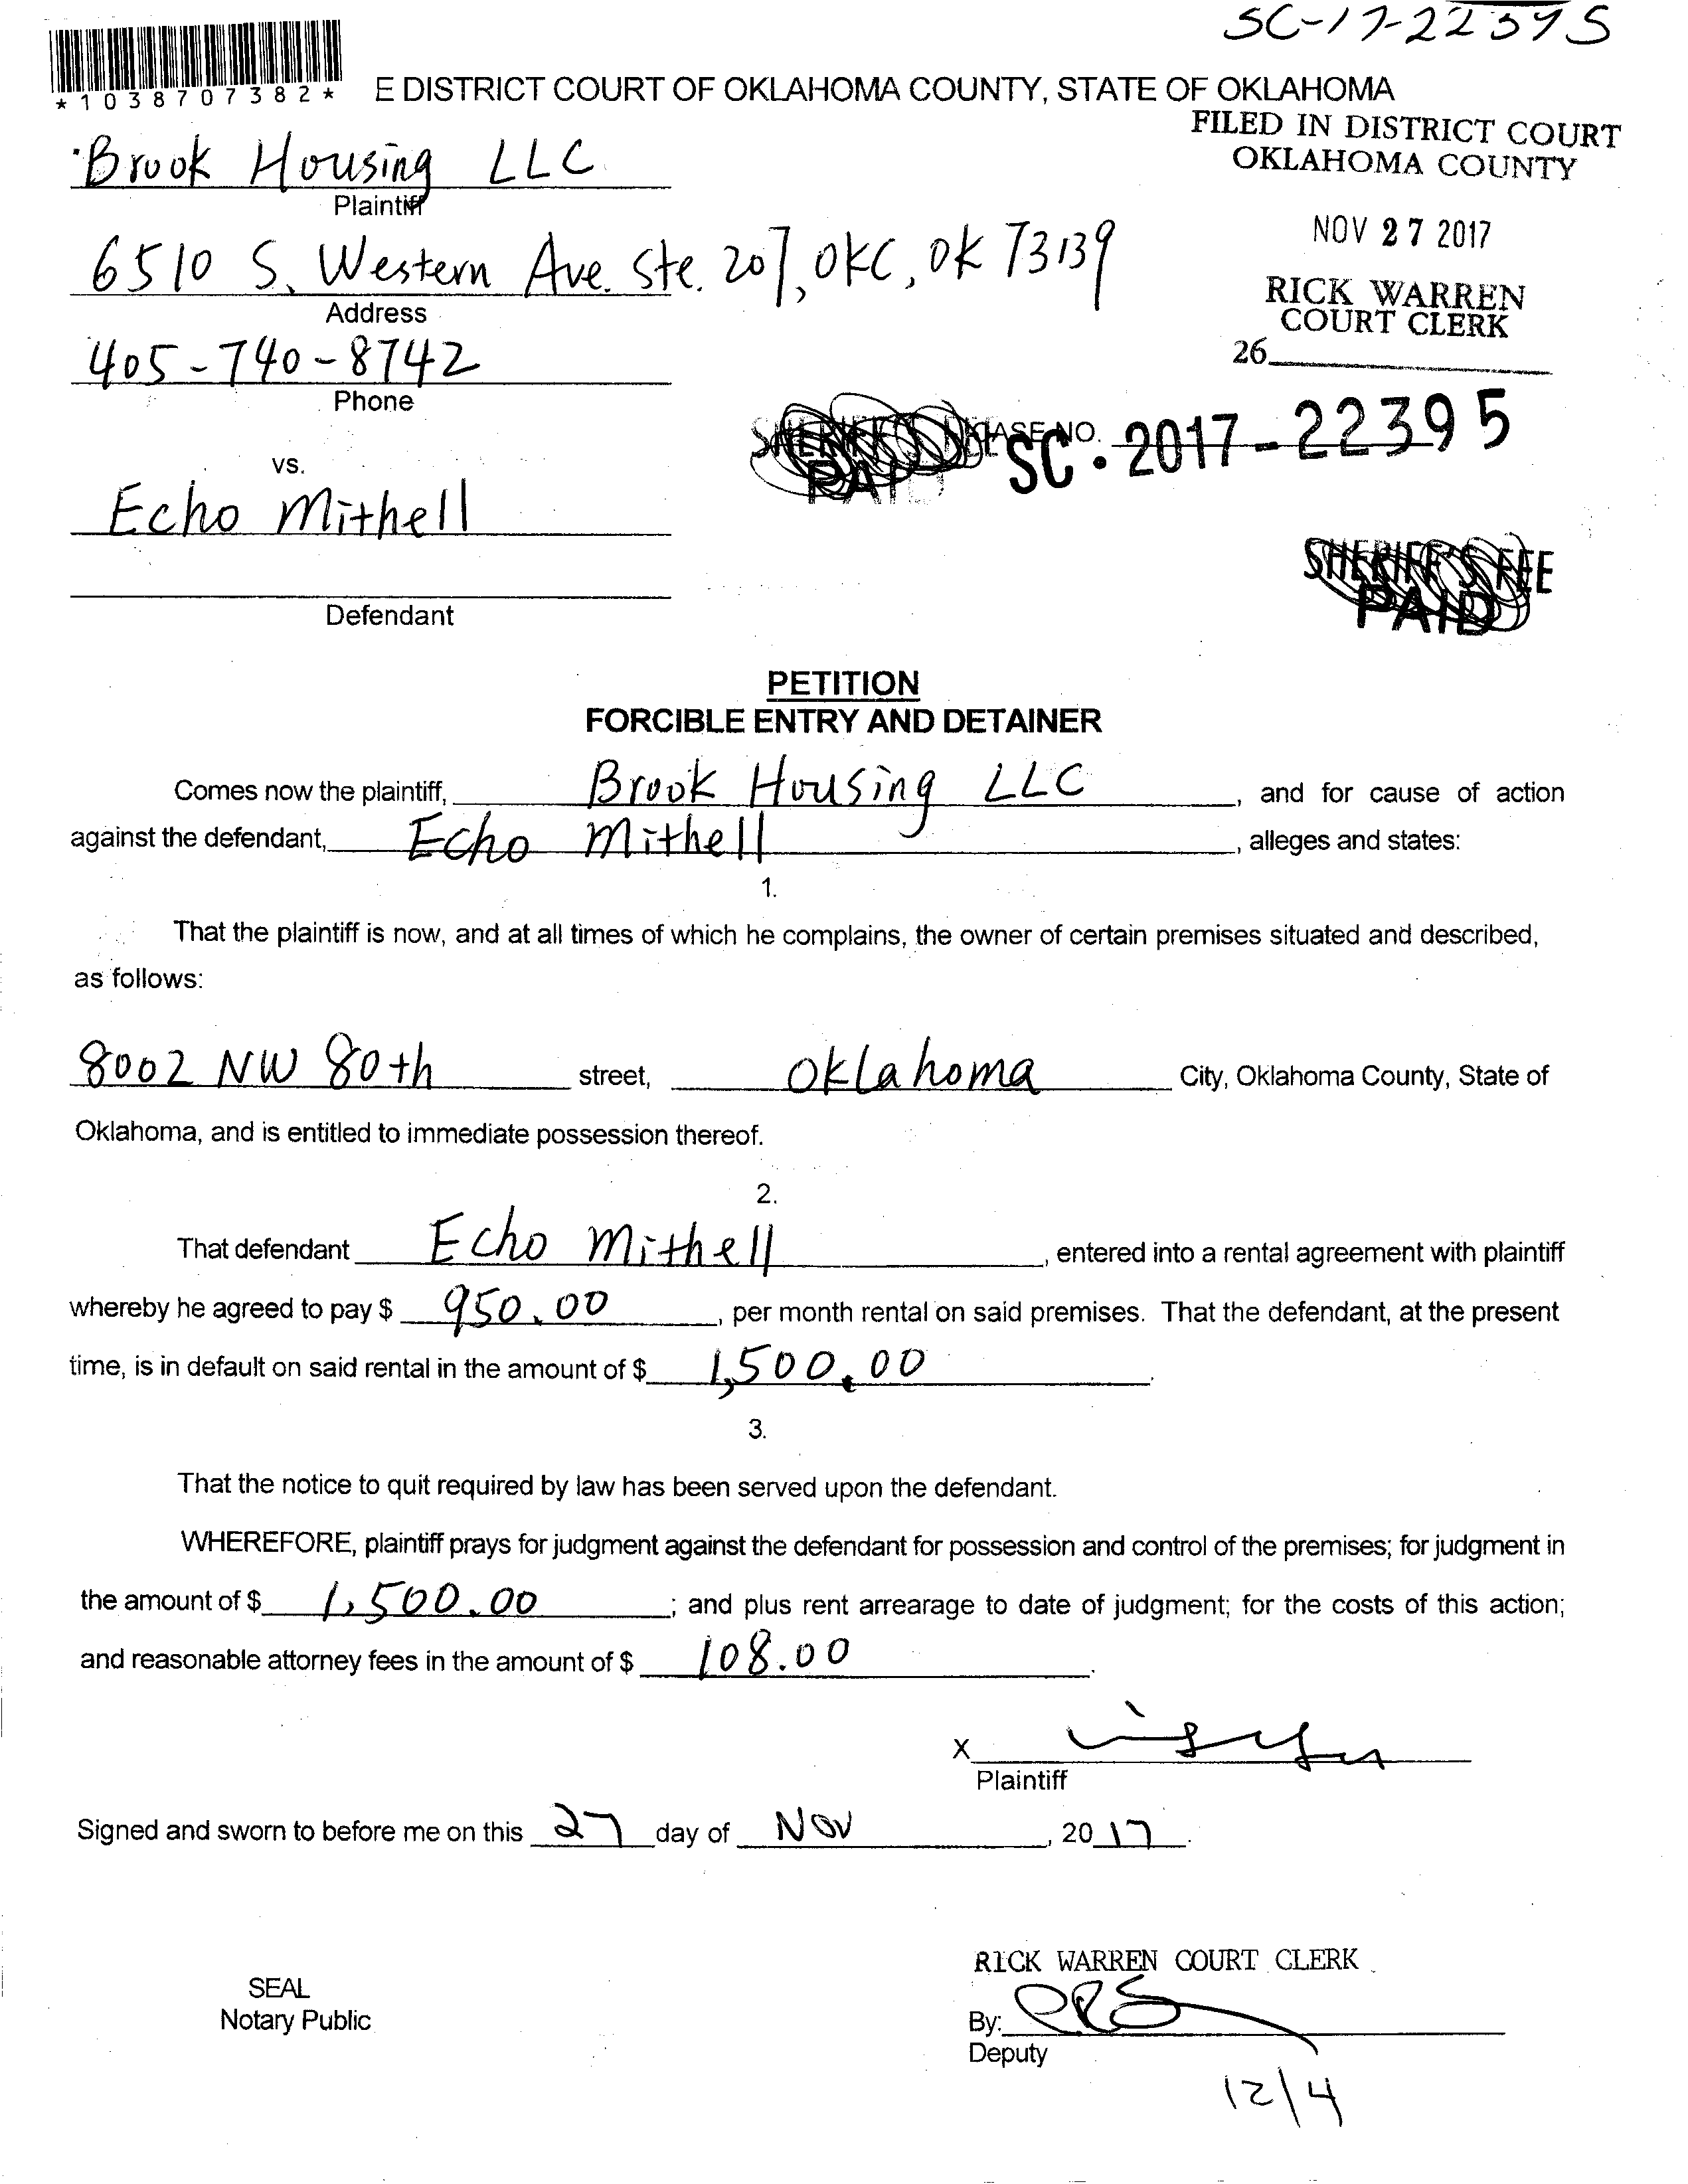 SC-17-22395
*1038707382*
E DISTRICT COURT OF OKLAHOMA COUNTY, STATE OF OKLAHOMA
FILED IN DISTRICT COURT
OKLAHOMA COUNTY
Brook Housing LLC
Plaintiff
NOV 27 2017
6510 S. Western Ave. Ste. 207, OKC, OK 73139
Address
RICK WARREN
COURT CLERK
405-740-8742
26
Phone
SHERIFF'S FEE
PAID
CASE NO. SC-2017-22395
vs.
Echo Mithell
SHERIFF'S FEE
PAID
Defendant
PETITION
FORCIBLE ENTRY AND DETAINER
Comes now the plaintiff, Brook Housing LLC, and for cause of action
against the defendant, Echo Mithell, alleges and states:
1.
That the plaintiff is now, and at all times of which he complains, the owner of certain premises situated and described,
as follows:
8002 NW 80th street, Oklahoma City, Oklahoma County, State of
Oklahoma, and is entitled to immediate possession thereof.
2.
That defendant Echo Mithell, entered into a rental agreement with plaintiff
whereby he agreed to pay $ 950.00, per month rental on said premises. That the defendant, at the present
time, is in default on said rental in the amount of $ 1,500.00.
3.
That the notice to quit required by law has been served upon the defendant.
WHEREFORE, plaintiff prays for judgment against the defendant for possession and control of the premises; for judgment in
the amount of $ 1,500.00; and plus rent arrearage to date of judgment; for the costs of this action;
and reasonable attorney fees in the amount of $ 108.00.
X
Plaintiff
Signed and sworn to before me on this 27 day of Nov, 2017.
RICK WARREN COURT CLERK
SEAL
Notary Public
By:
Deputy
12/4